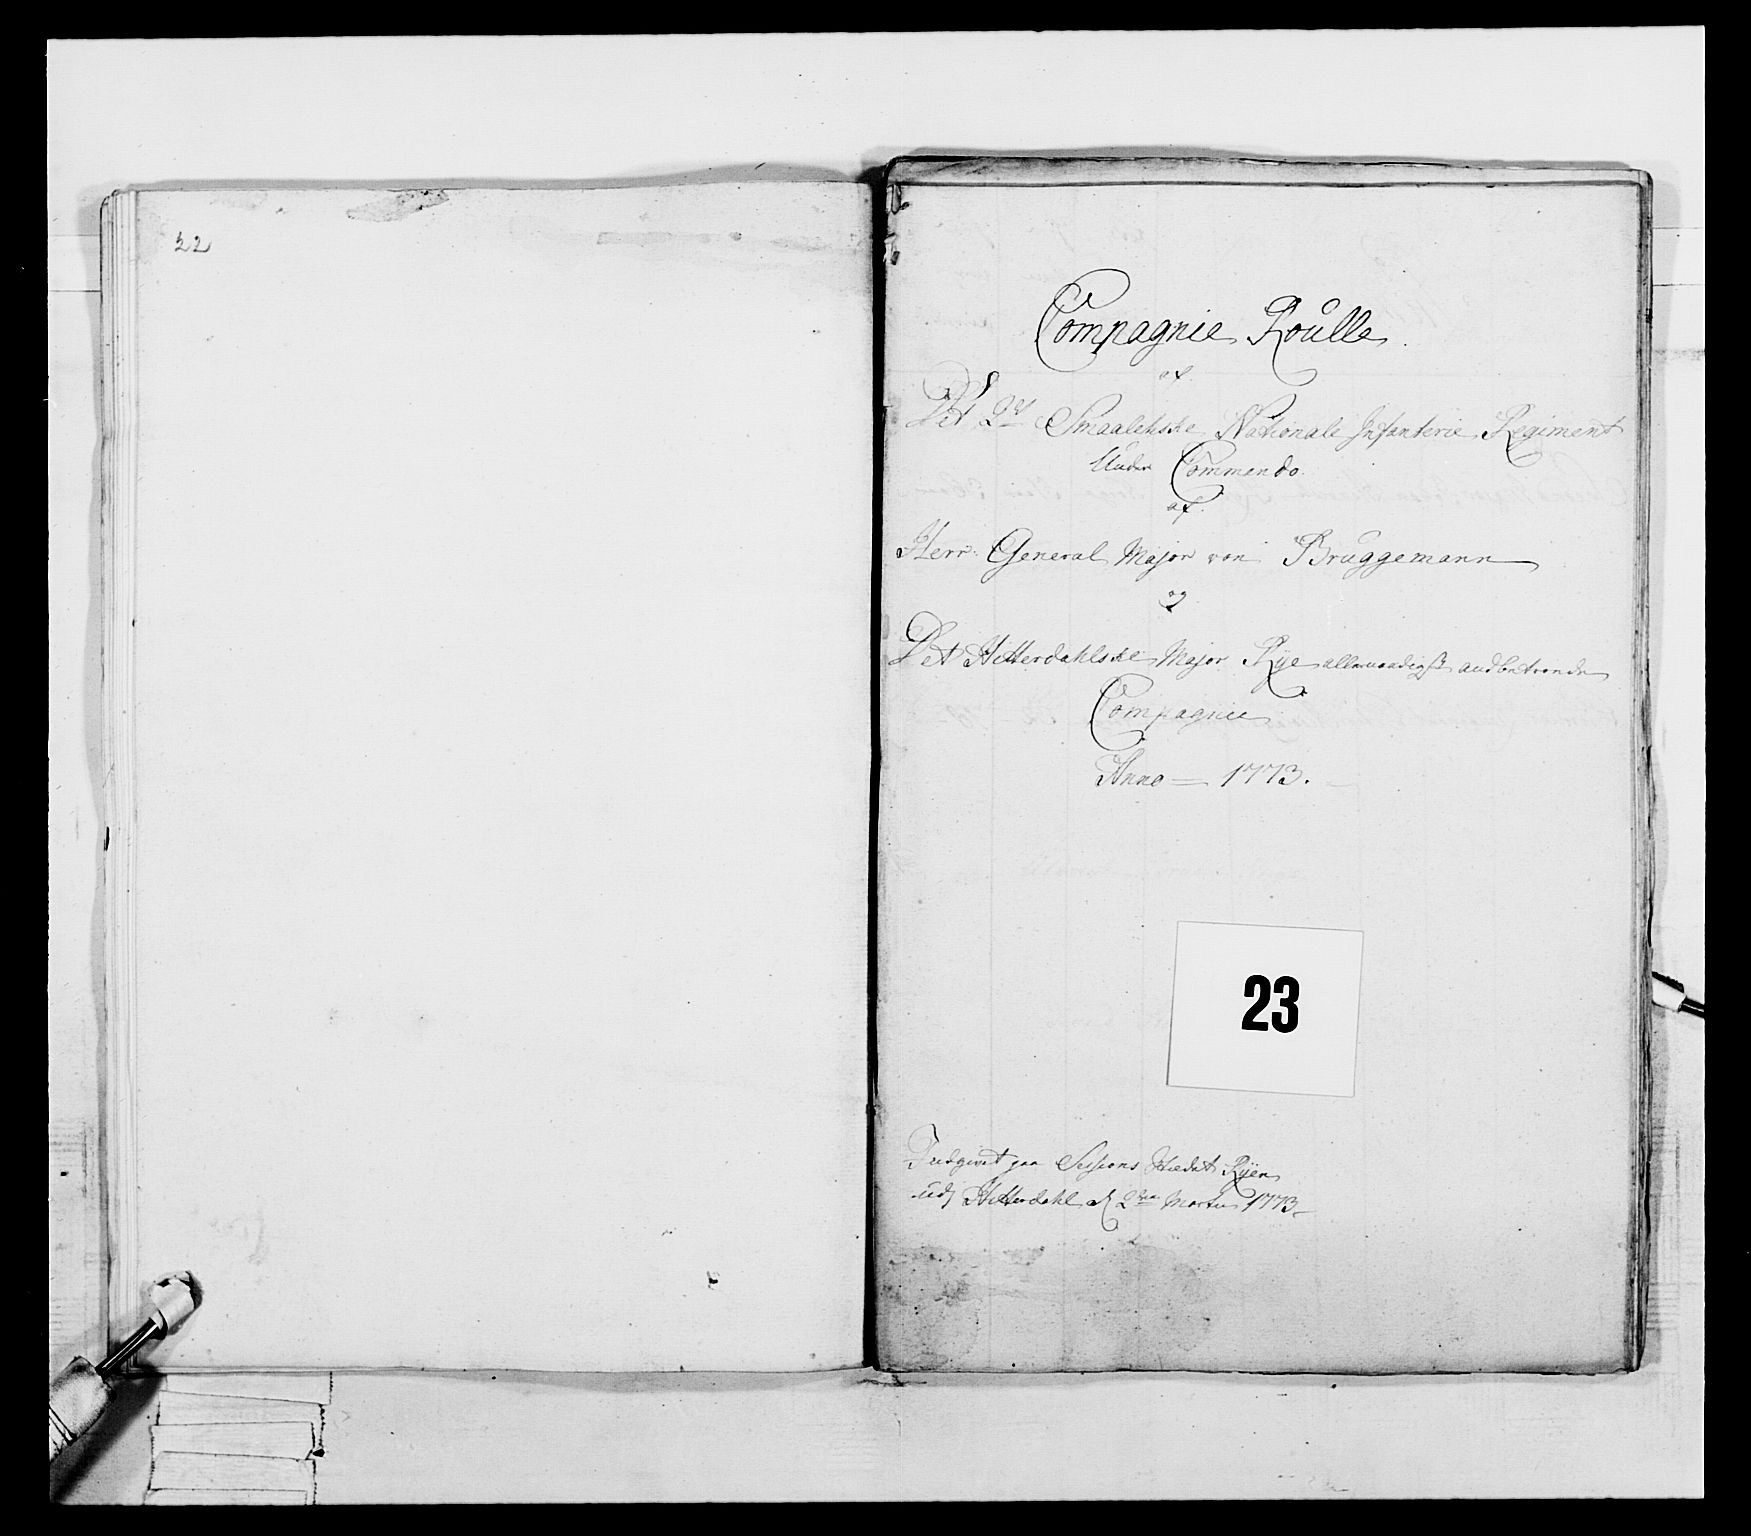 22
Compagnie Roulle
af
Det 2det Smaalehnske Nationale Infanterie Regiment
Under Commando
af
Herr General Major von Bruggemann
og
Det Hitterdahlske Major Rye allernaadigst anbetroede
Compagnie
Anno 1773.
23
Indgivet paa Sessions Stædet Ryen
udj Hitterdahl d 2den Martii 1773